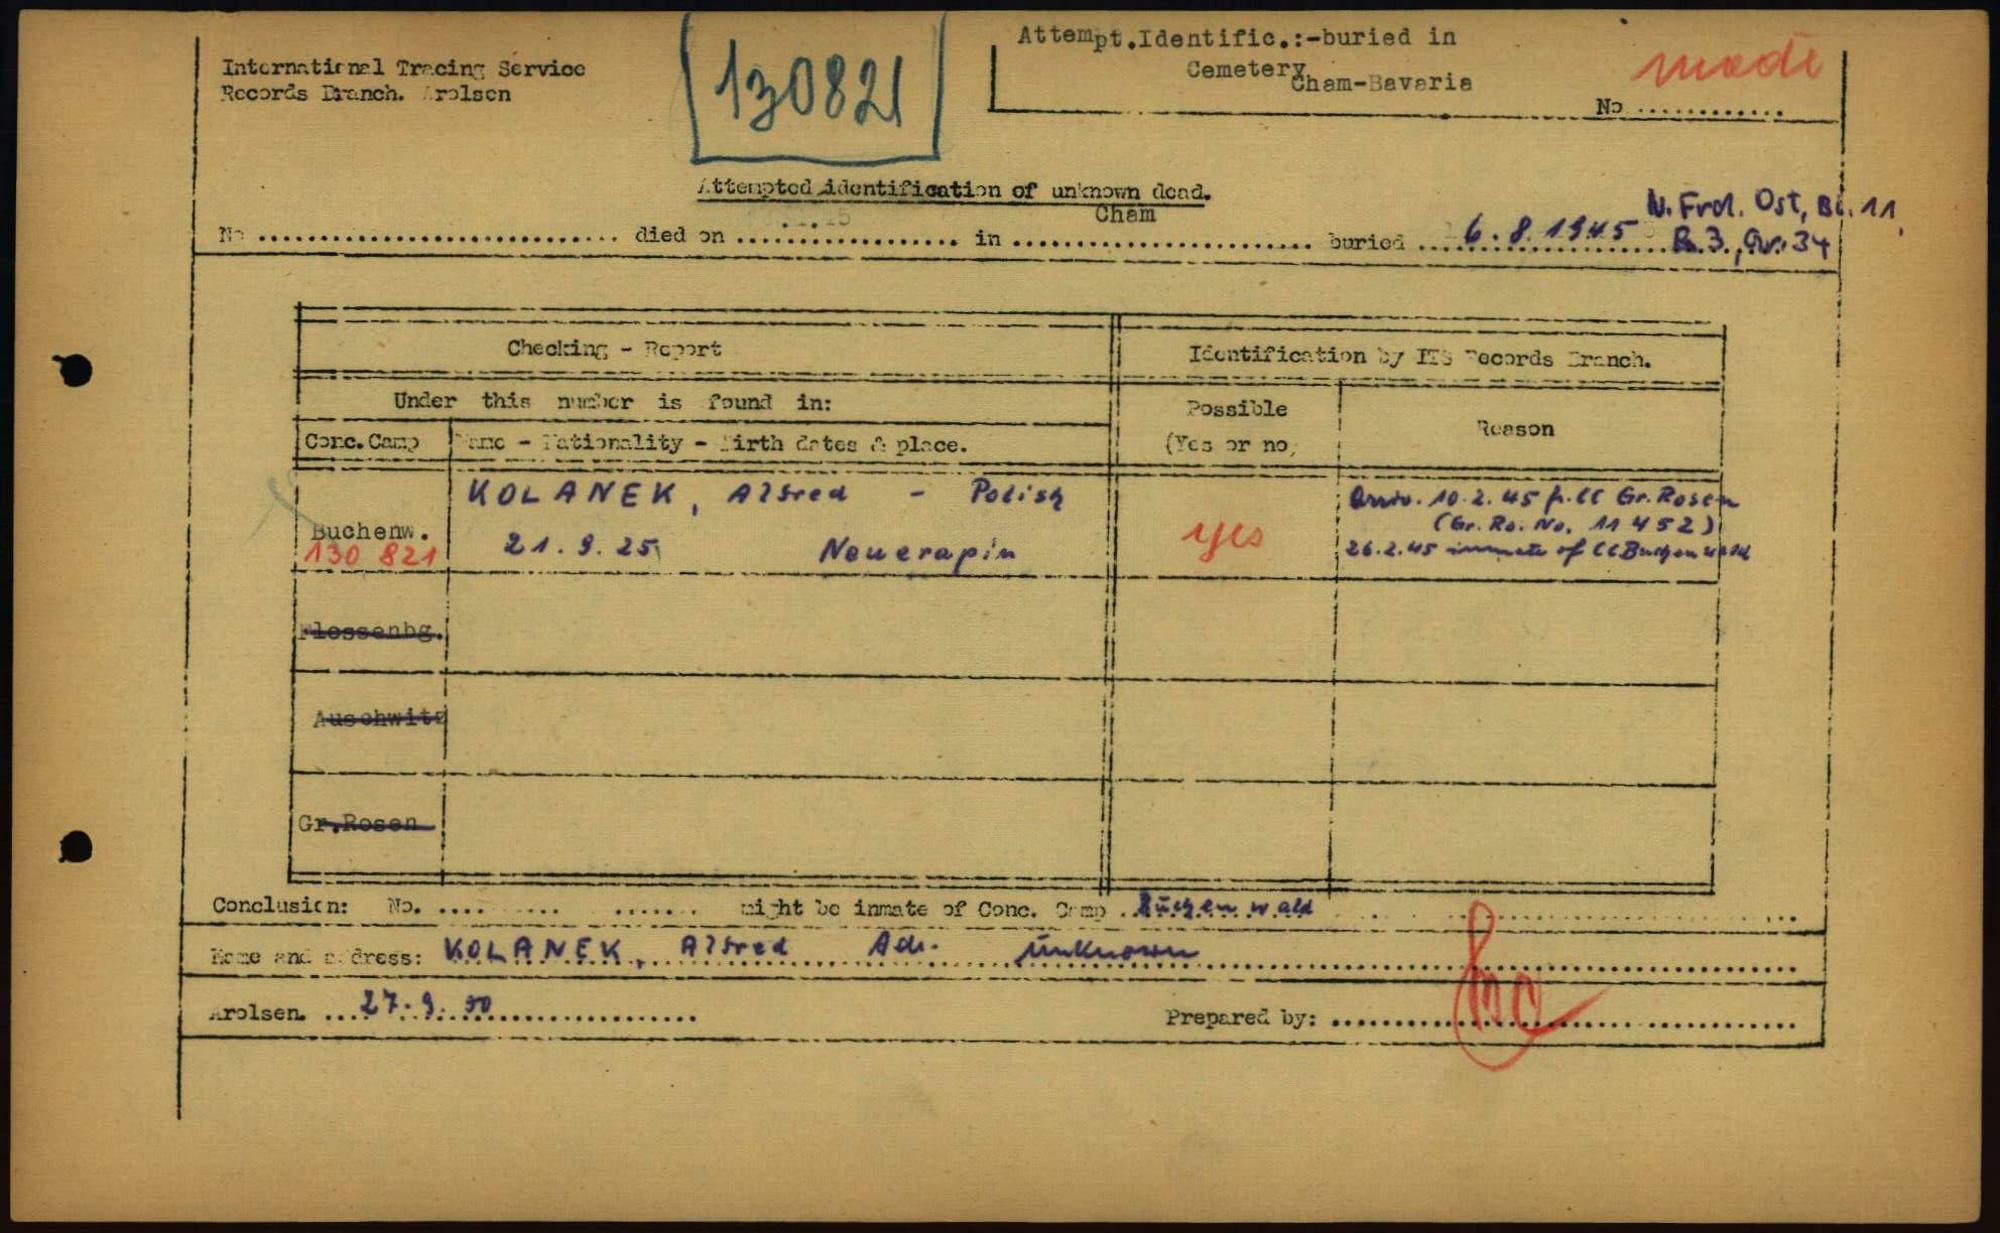 International Tracing Service
Records Branch. Arolsen
130821
Attempt.Identific.:-buried in
Cemetery
Cham-Bavaria
No ............
Attempted identification of unknown dead.
Cham
N. Frd. Ost, Bl. 11,
No ............ died on ............ in ............ buried 6.8.1945 R.3., Gr. 34
Checking - Report
Identification by ITS Records Branch.
Under this number is found in:
Possible
(Yes or no)
Reason
Conc.Camp
Name - Nationality - Birth dates & place.
Buchenw.
130 821
KOLANEK, Alfred - Polish
21.9.25 Neuerapin
yes
Arriv. 10.2.45 fr. CC Gr. Rosen
(Gr. Ro. No. 11 452)
26.2.45 inmate of CC Buchenwald
Flossenbg.
Auschwitz
Gr.Rosen
Conclusion: No. ............ might be inmate of Conc. Camp Buchenwald
Name and address: KOLANEK, Alfred Adr. unknown
Arolsen. 27.9.50
Prepared by: ............